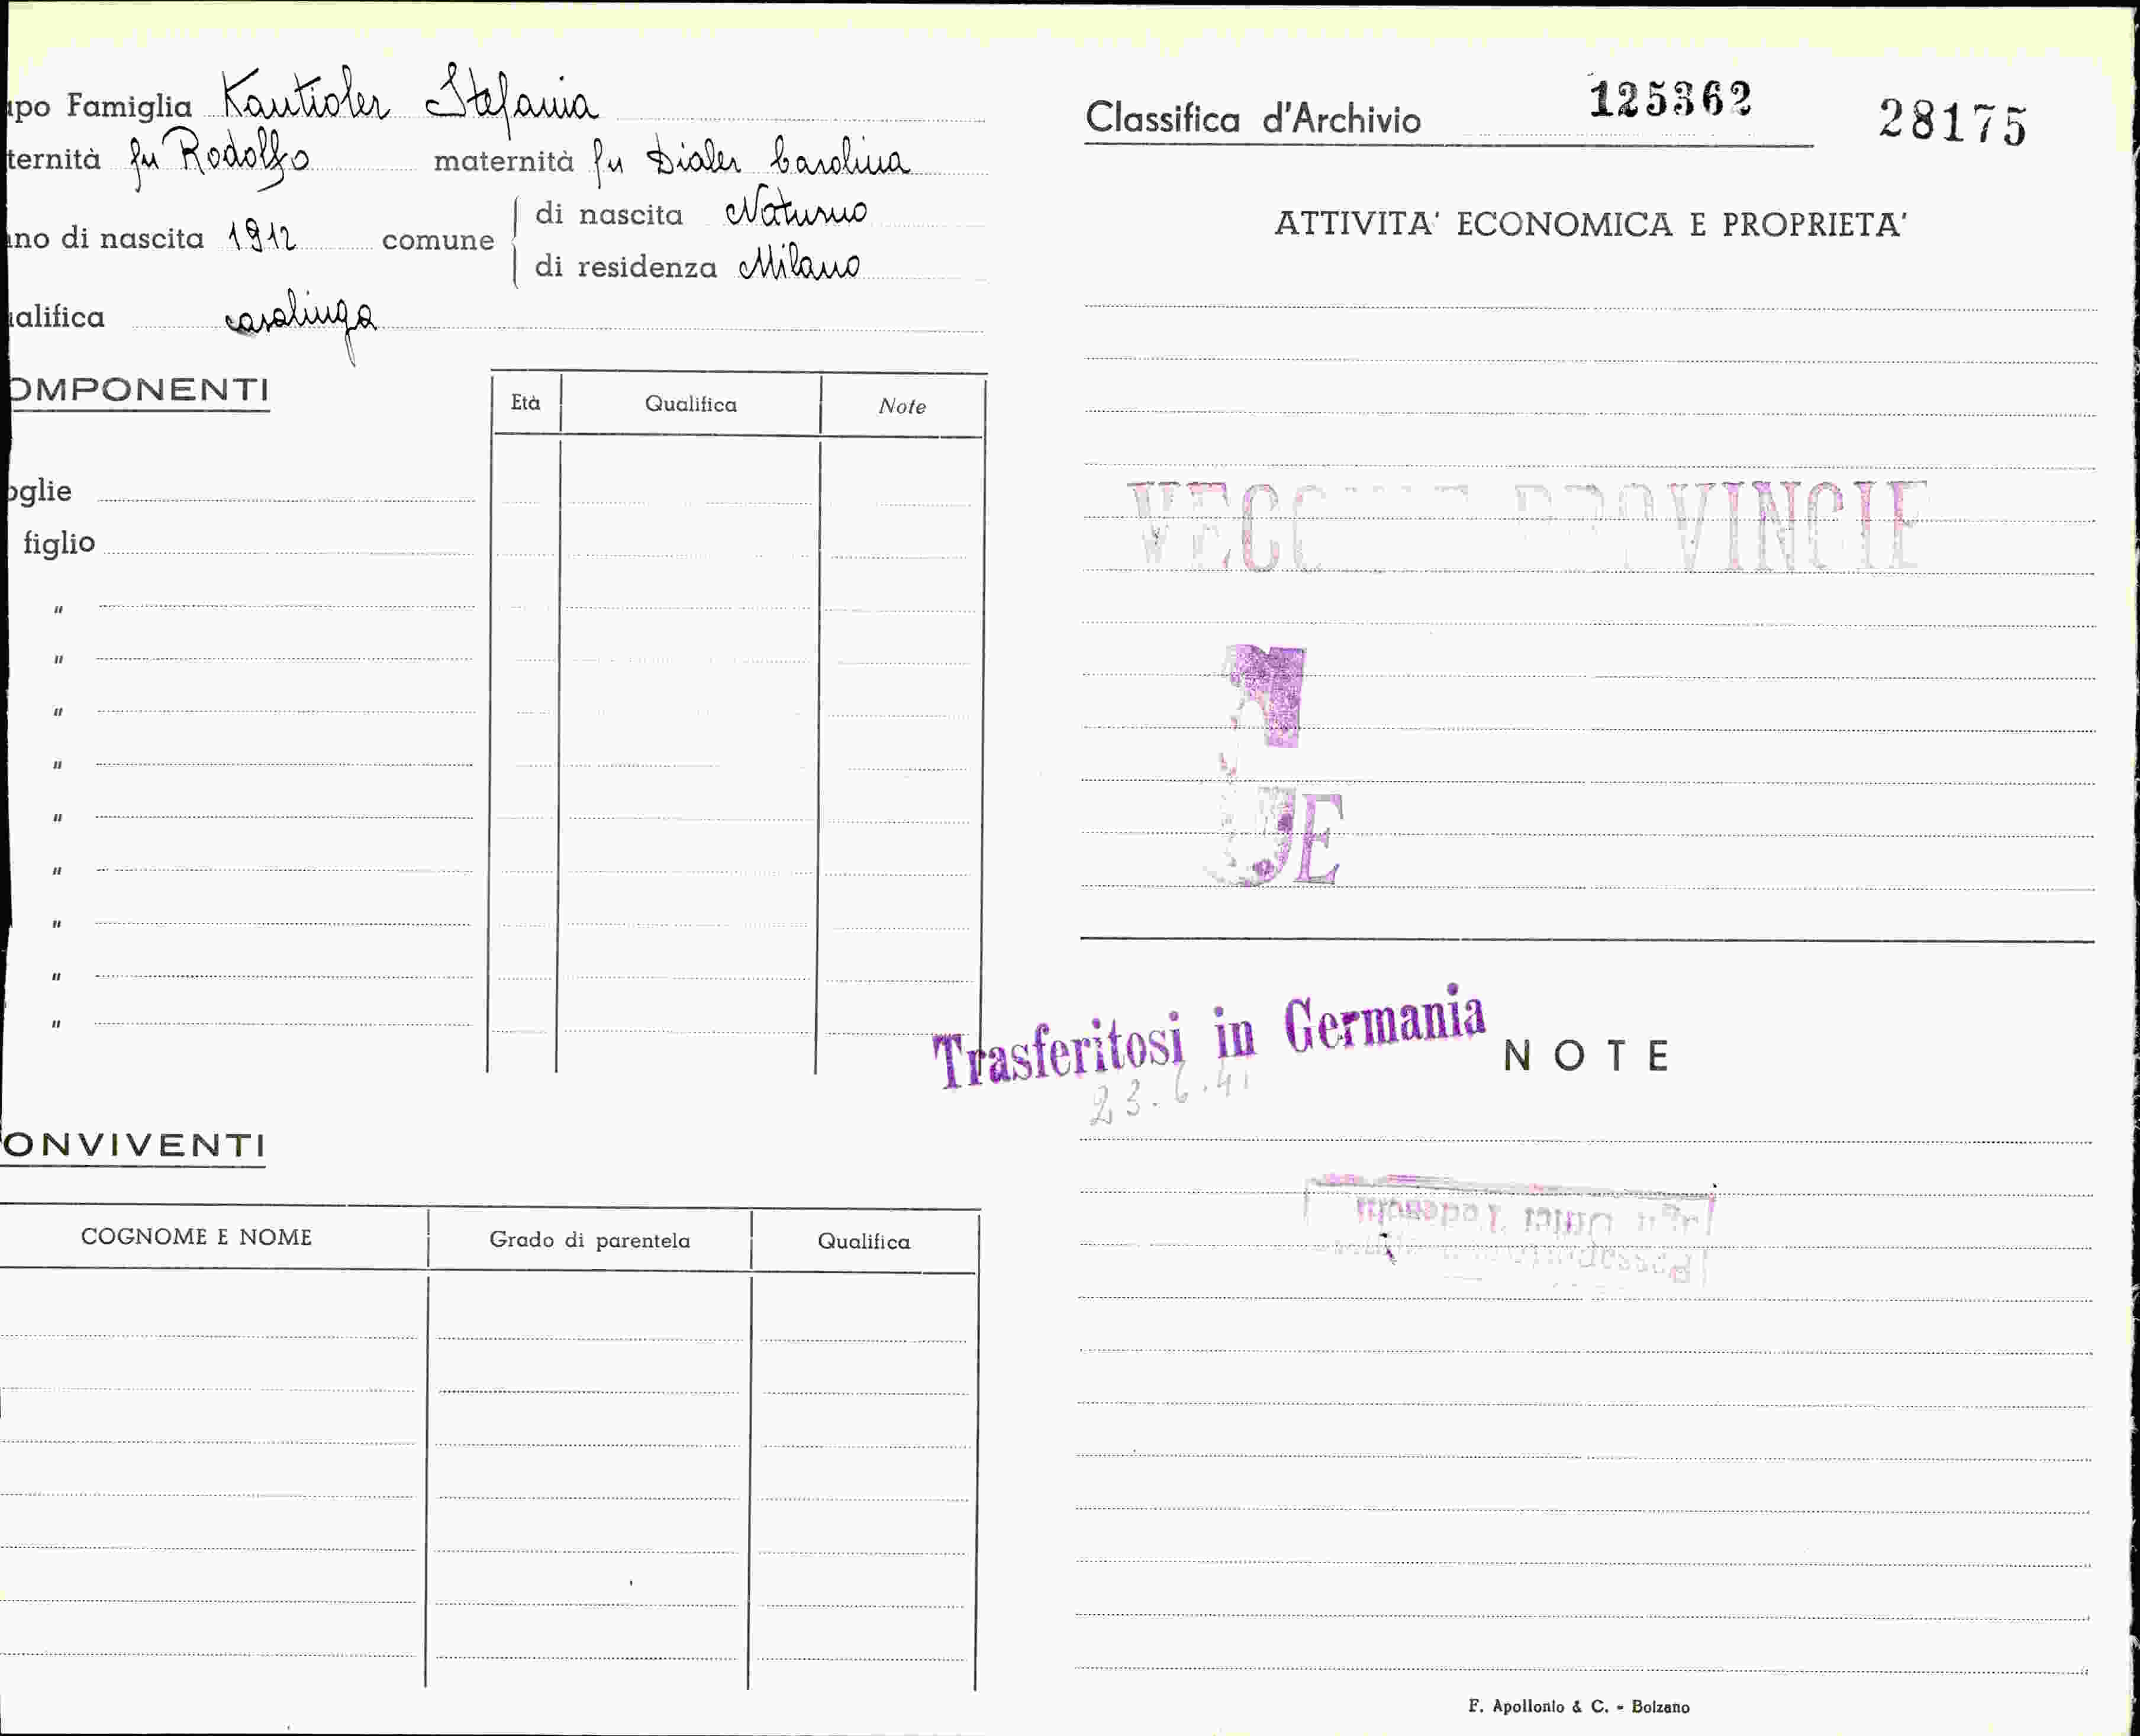 po Famiglia Kautioler Stefania
ternità fu Rodolfo maternità fu Dialer Carolina
no di nascita 1912 comune di nascita Naturno
di residenza Milano
alifica casalinga
OMPONENTI
Età Qualifica Note
glie
figlio
"
"
"
"
"
"
"
"
"
ONVIVENTI
COGNOME E NOME Grado di parentela Qualifica
Classifica d'Archivio 125362 28175
ATTIVITA' ECONOMICA E PROPRIETA'
PROVINCIE
Trasferitosi in Germania
23.6.41
NOTE
F. Apollonio & C. - Bolzano